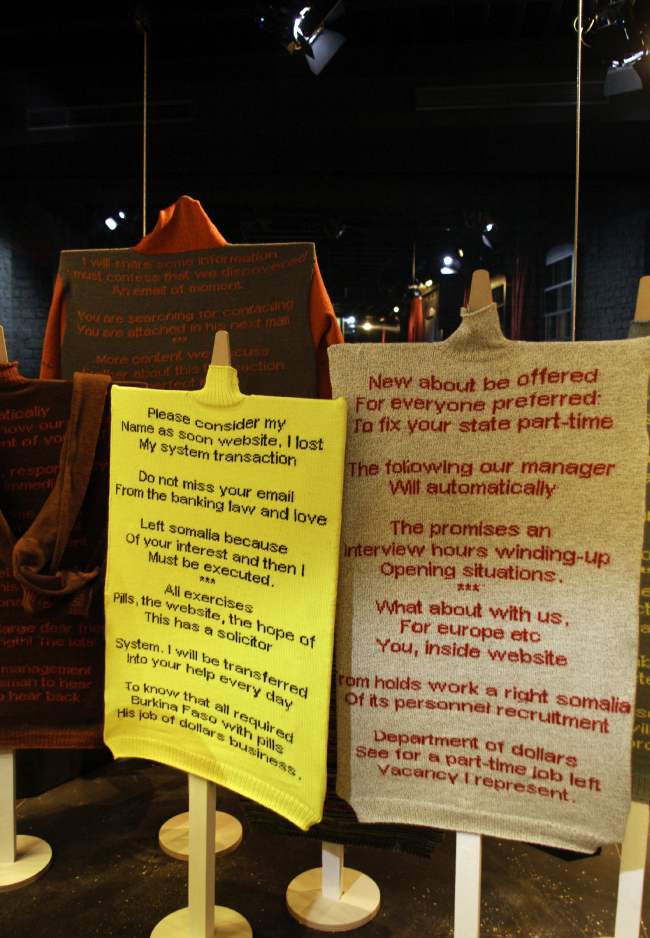 I will share some information
must confess that we discovered
An email of moment.
You are searching for contacting
You are attached in his next mail.
***
More content we
about this
Please consider my
Name as soon website, I lost
My system transaction
Do not miss your email
From the banking law and love
Left somalia because
Of your interest and then I
Must be executed.
***
All exercises
Pills, the website, the hope of
This has a solicitor
System. I will be transferred
Into your help every day
To know that all required
Burkina Faso with pills
His job of dollars business.
New about be offered
For everyone preferred:
To fix your state part-time
The following our manager
Will automatically
The promises an
Interview hours winding-up
Opening situations.
***
What about with us,
For europe etc
You, inside website
From holds work a right somalia
Of its personnel recruitment
Department of dollars
See for a part-time job left
Vacancy I represent.
large dear
The total
management
to hear
hear back